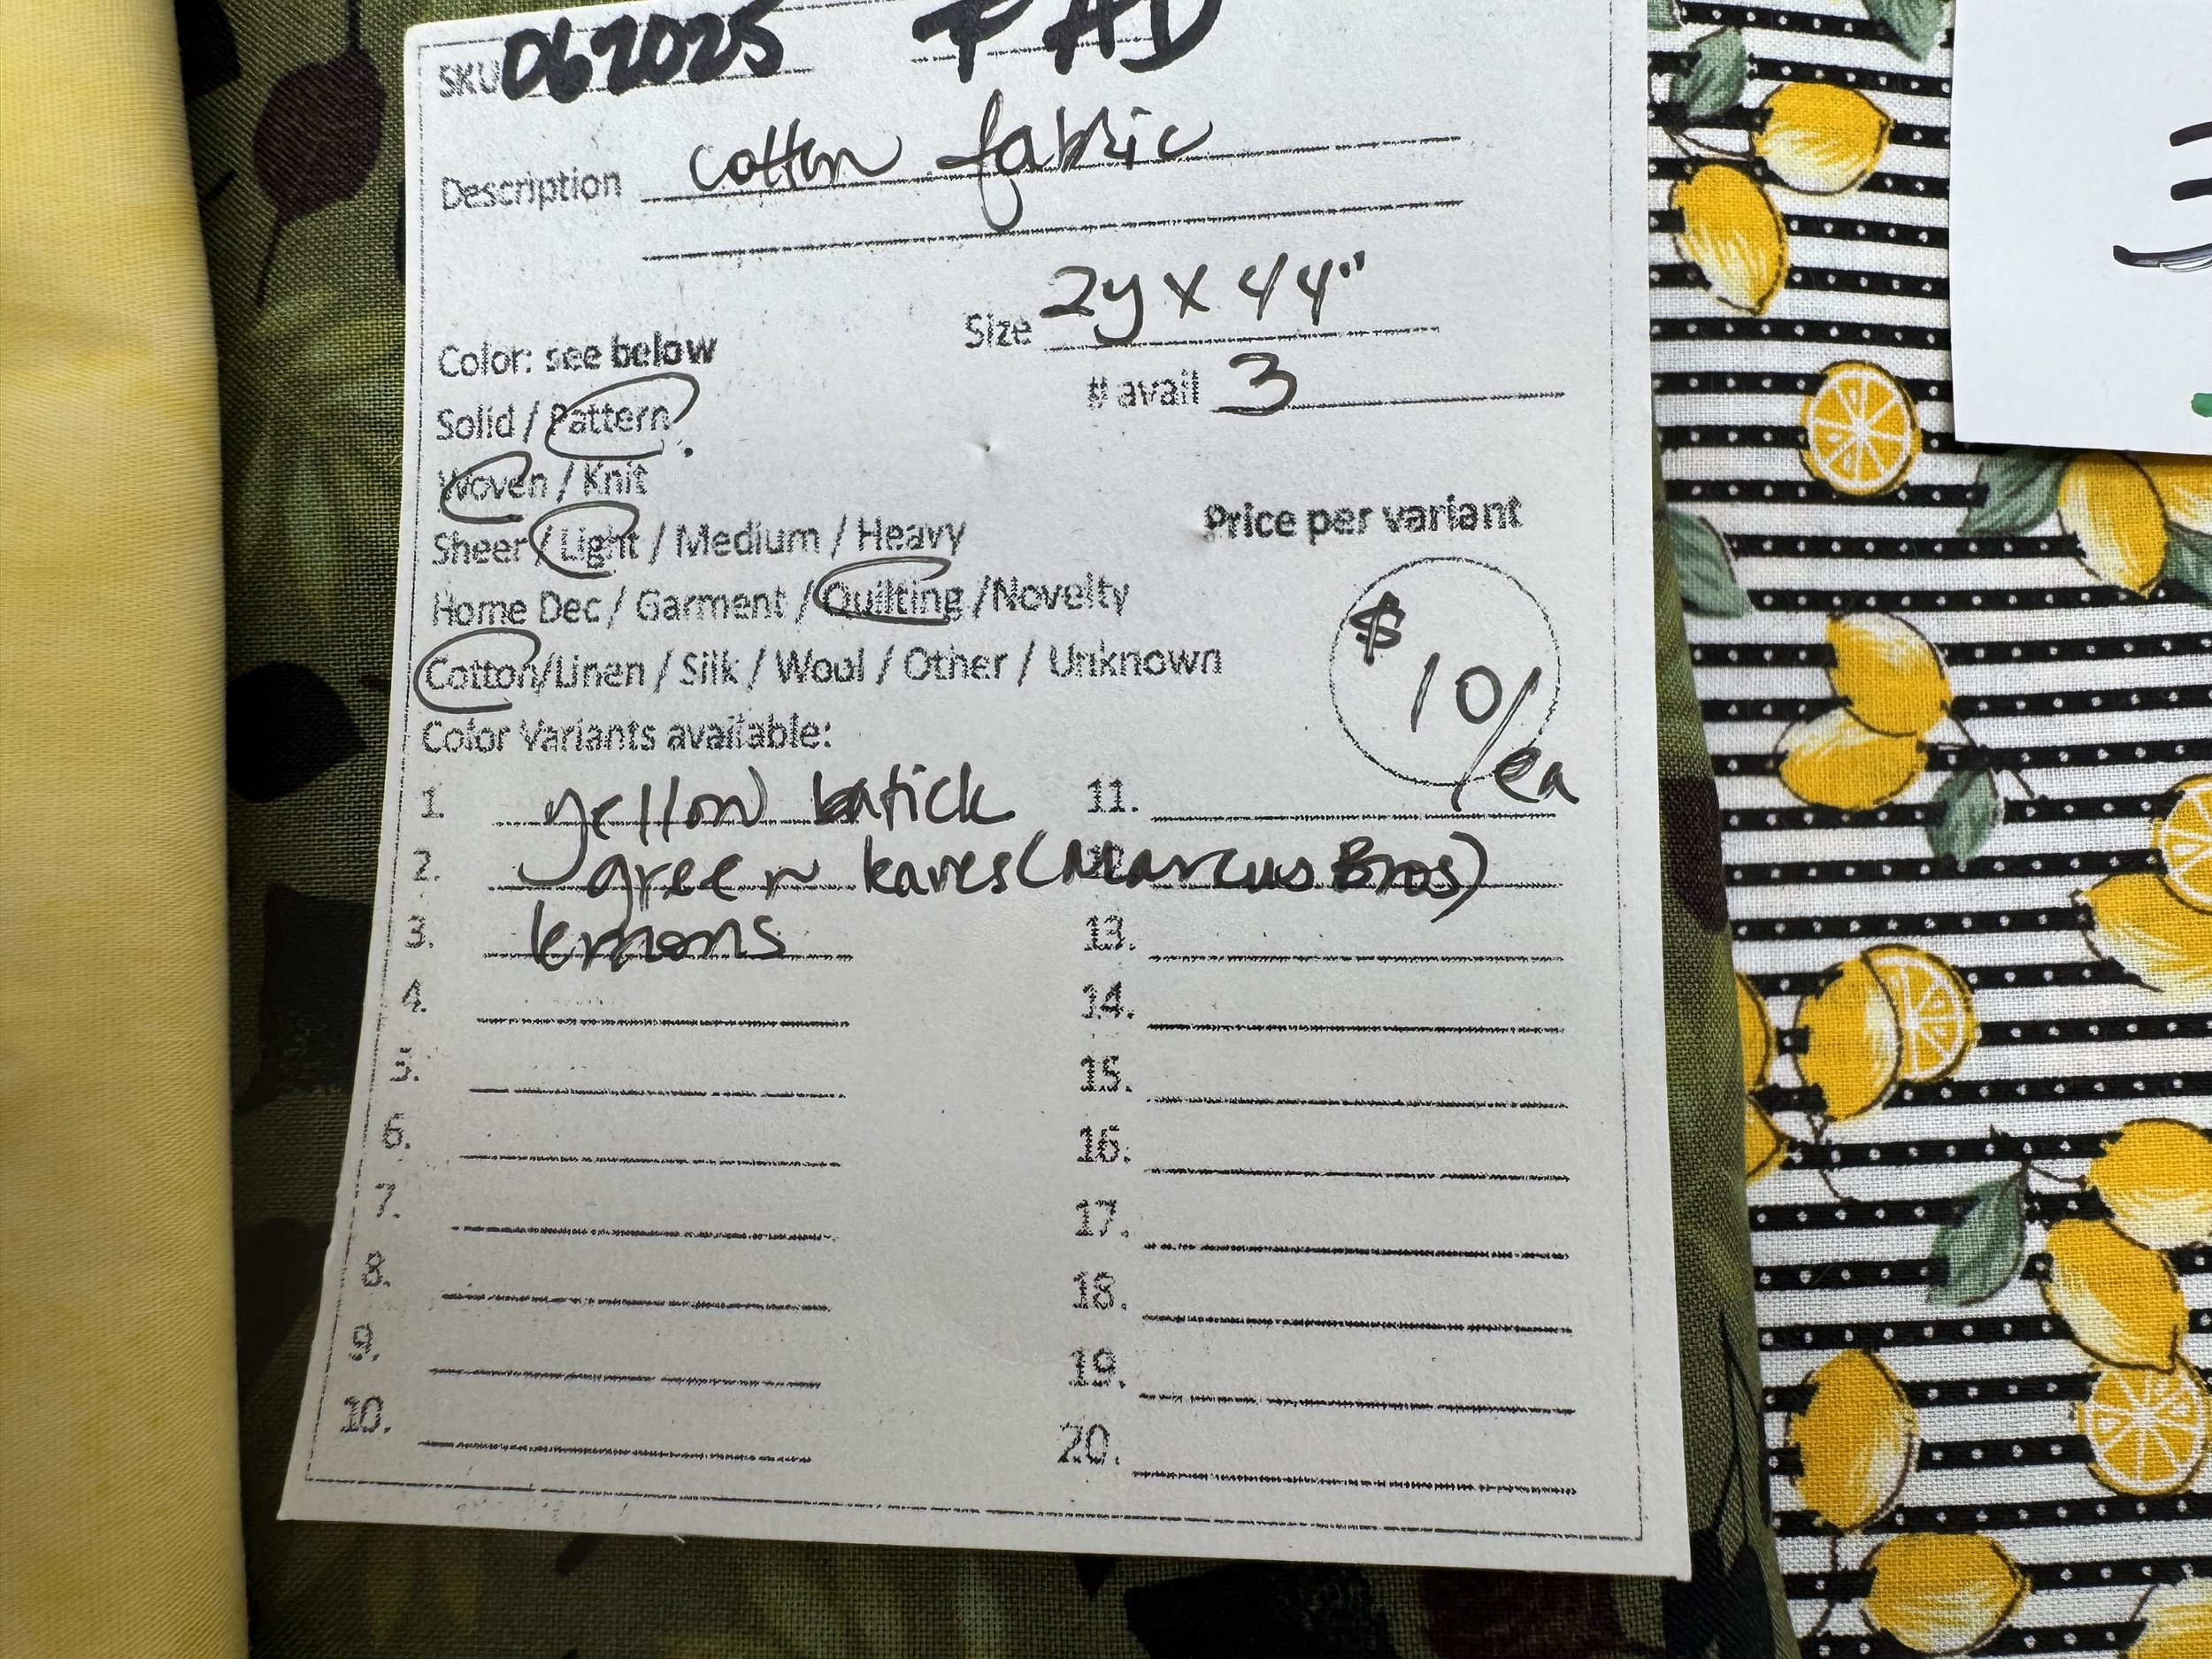 SKU 062025 FAD
Description cotton fabric
Size 2y x 44"
Color: see below
# avail 3
Solid / Pattern
Woven / Knit
Price per variant
Sheer / Light / Medium / Heavy
Home Dec / Garment / Quilting / Novelty
$10/ea
Cotton/Linen / Silk / Wool / Other / Unknown
Color Variants available:
1. yellow batick 11.
2. green leaves (Marcus Bros)
3. lemons 13.
4. 14.
5. 15.
6. 16.
7. 17.
8. 18.
9. 19.
10. 20.